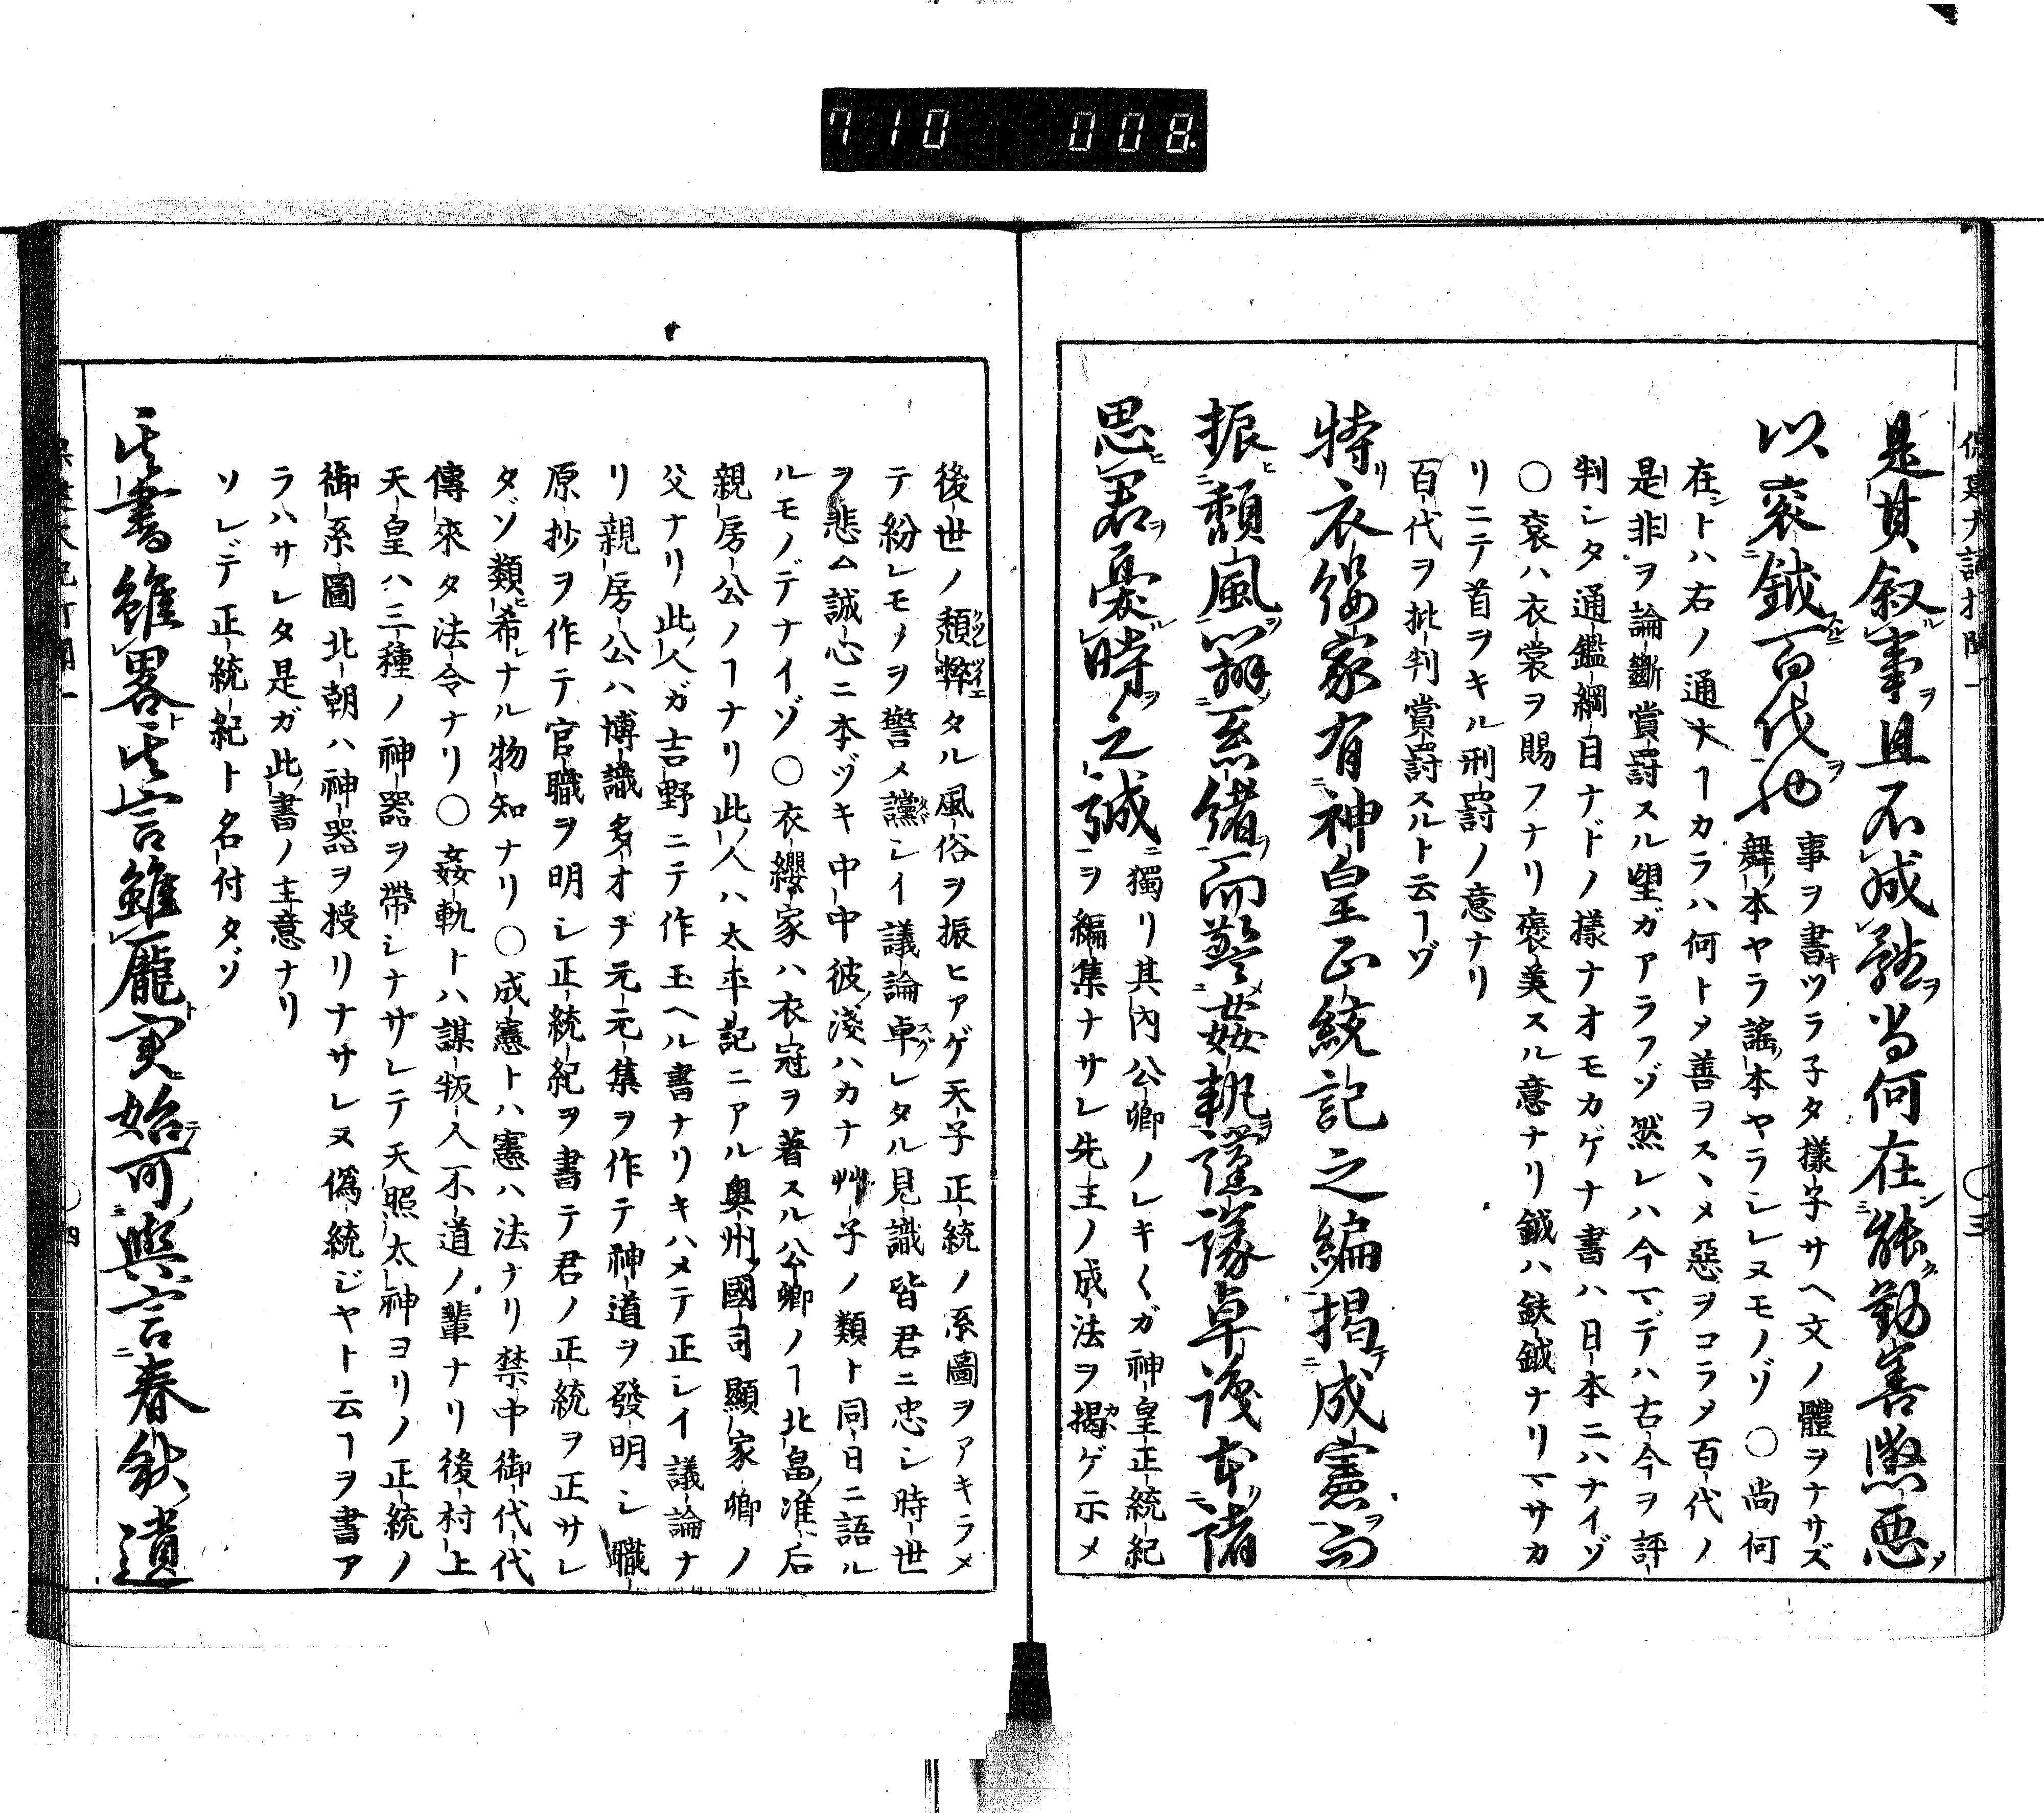 710 008.
是其叙事且不成體尚何在能勸善懲悪
以衮鉞百代也
事ヲ書キツラ子タ様子サヘ文ノ體ヲナサズ
舞本ヤラ謡本ヤラシレヌモノゾ ○尚何
在ントハ右ノ通ナヿカラハ何トメ善ヲスヽメ惡ヲコラメ百代ノ
是非ヲ論斷賞罸スル望ガアラフゾ然レハ今マデハ古今ヲ評
判シタ通鑑綱目ナドノ様ナオモカゲナ書ハ日本ニハナイゾ
○衮ハ衣裳ヲ賜フナリ褒美スル意ナリ鉞ハ鈇鉞ナリマサカ
リニテ首ヲキル刑罸ノ意ナリ
百代ヲ批判賞罸スルト云ヿヅ
特リ衣纓家有神皇正統記之編掲成憲而
振頽風辨系緒而警姦軌讜議卓識本諸
思君憂時之誠
獨リ其内公卿ノレキ〱ガ神皇正統紀
ヲ編集ナサレ先王ノ成法ヲ掲ゲ示メ
後世ノ頽弊タル風俗ヲ振ヒアゲ天子正統ノ系圖ヲアキラメ
テ紛レモノヲ警メ讜シイ議論卓レタル見識皆君ニ忠シ時世
ヲ悲ム誠心ニ本ヅキ中中彼淺ハカナ艸子ノ類ト同日ニ語ル
ルモノデナイゾ ○衣纓家ハ衣冠ヲ著スル公卿ノヿ北畠准后
親房公ノヿナリ此人ハ太平記ニアル奥州國司顯家卿ノ
父ナリ此人ガ吉野ニテ作玉ヘル書ナリキハメテ正シイ議論ナ
リ親房公ハ博識多オヂ元元集ヲ作テ神道ヲ發明シ職
原抄ヲ作テ官職ヲ明シ正統紀ヲ書テ君ノ正統ヲ正サレ
タゾ類希ナル物知ナリ ○成憲トハ憲ハ法ナリ禁中御代代
傳來タ法令ナリ ○姦軌トハ謀叛人不道ノ輩ナリ後村上
天皇ハ三種ノ神器ヲ帶シナサレテ天照太神ヨリノ正統ノ
御系圖北朝ハ神器ヲ授リナサレヌ僞統ジヤト云ヿヲ書ア
ラハサレタ是ガ此書ノ主意ナリ
ソレデ正統紀ト名付タゾ
其書雖畧其言雖厖実始可與言春秋遺